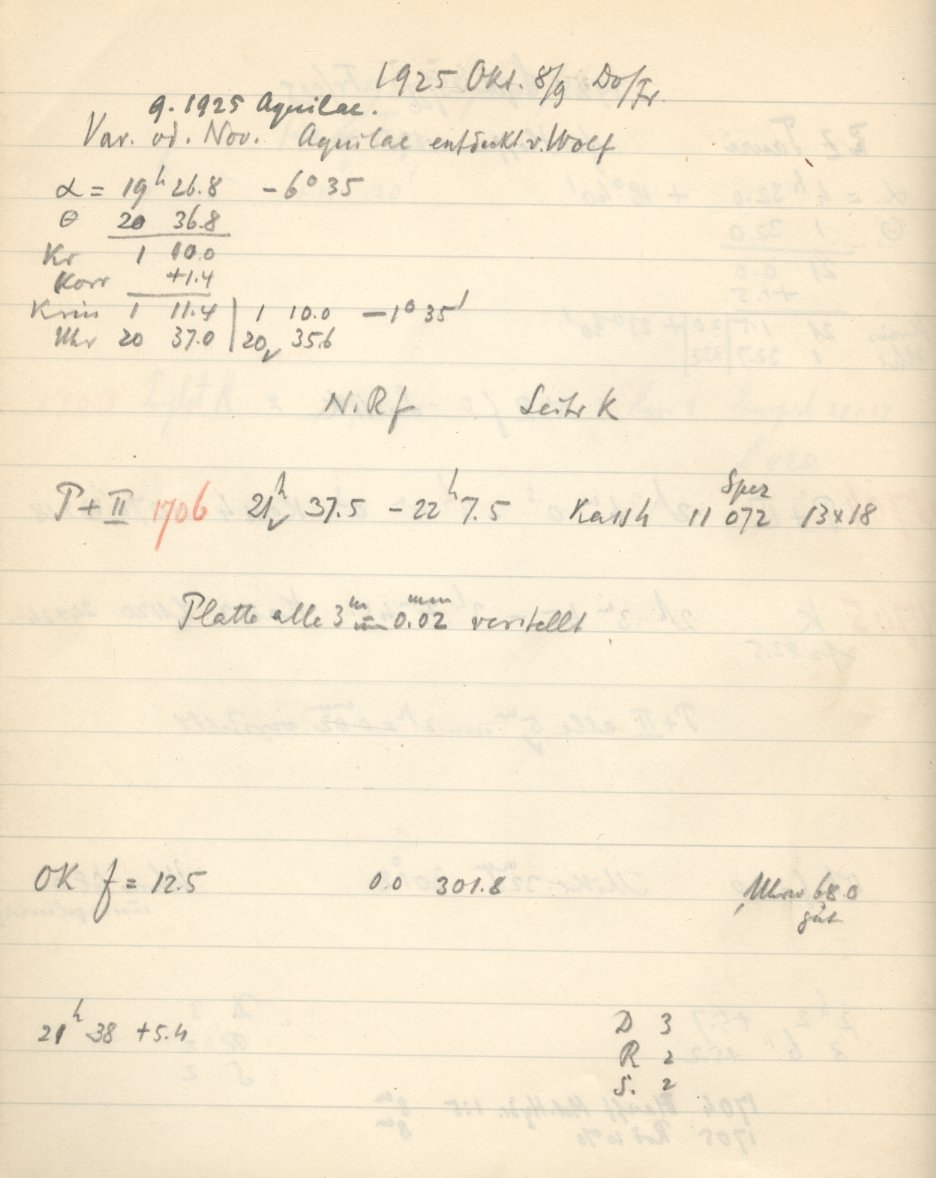 1925 Okt. 8/9 Do/Fr.
9. 1925 Aquilae.
Var. od. Nov. Aquilae entdeckt v. Wolf
α = 19h 26.8 -6° 35
θ 20 36.8
Kr 1 10.0
Korr +1.4
Krein 1 11.4 | 1 10.0 -1° 35'
Uhr 20 37.0 | 20 35.6
N. Rf
P + II 1706 21h 37.5 - 22h 7.5 Kass 4 Sper 11 072 13x18
Platte alle 3m um 0.02 mm verstellt
OK f = 12.5 0.0 301.8 Uhrw 68.0
gut
21h 38 +5.4
D 3
R 2
S. 2